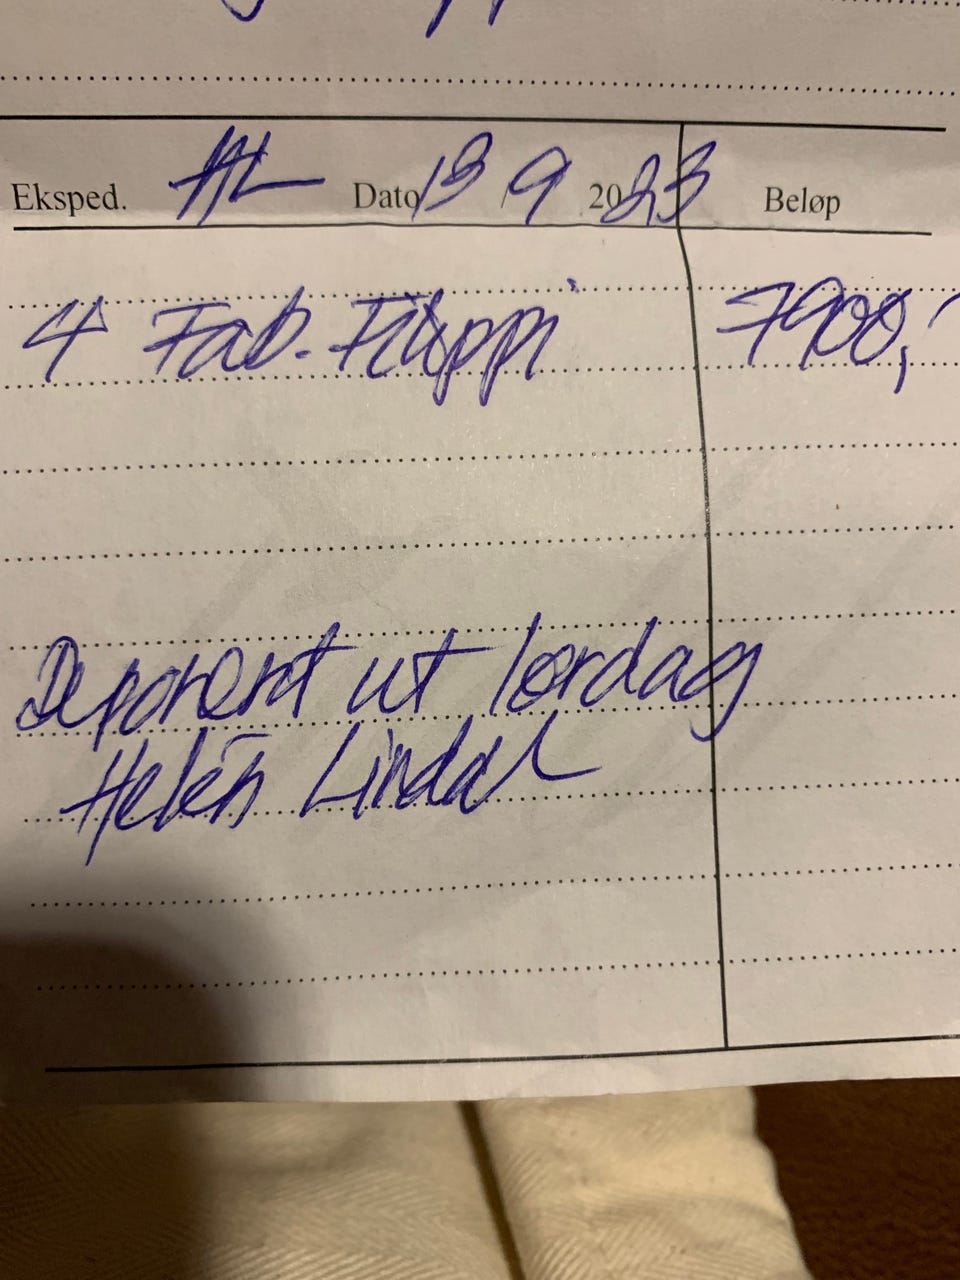 Eksped. HL Dato 13/9 2023 Beløp
4 Fab. Filippi 7900,-
Deponent ut lørdag
Helén Lindal